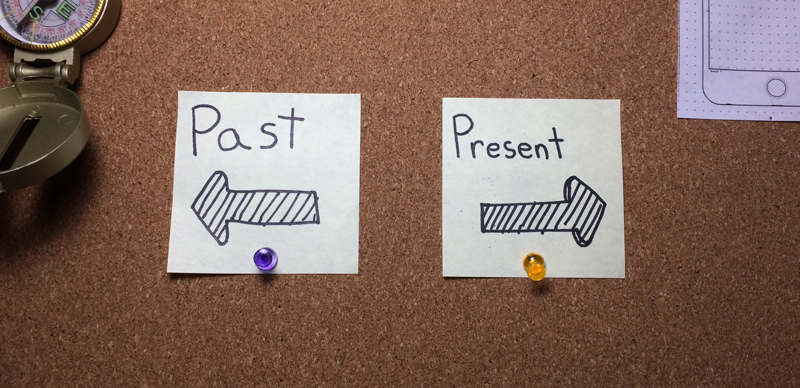 S E
Past
Present